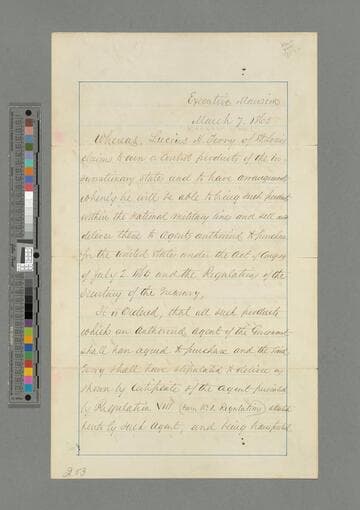 Executive Mansion
March 7, 1865
Whereas, Lucius S. Torry of St. Louis
claims to own or control products of the in-
surrectionary States and to have arrangements
whereby he will be able to bring such products
within the national military lines and sell and
deliver them to Agents authorized to purchase
for the United States under the Act of Congress
of July 2. 1864 and the Regulations of the
Secretary of the Treasury,
It is Ordered, that all such products
which an authorized agent of the Government
shall have agreed to purchase and the said
Torry shall have stipulated to deliver as
shown by Certificate of the agent prescribed
by Regulation VIII (Form No 1. Regulations)
hereto by such Agent, and being transported
253